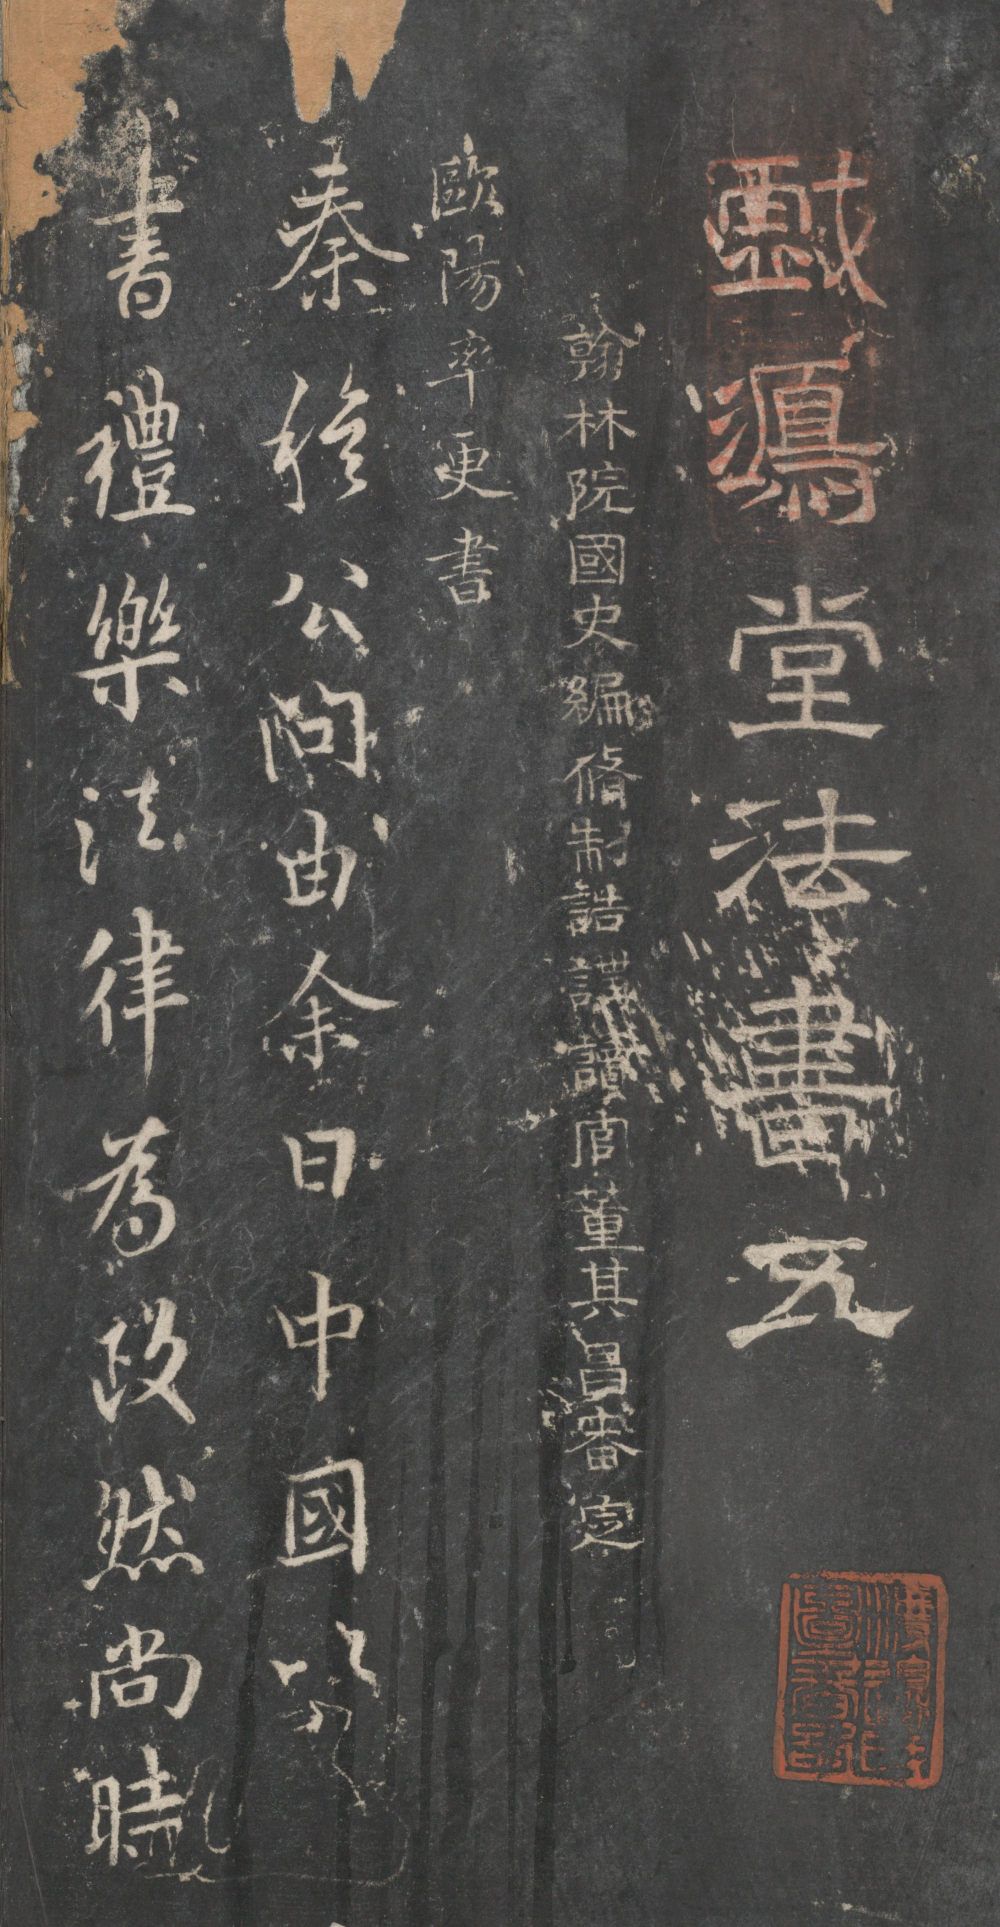 戲鴻堂法書五
翰林院國史編脩制誥講讀官董其昌審定
歐陽率更書
秦穆公問由余曰中國以
書禮樂法律為政然尚時